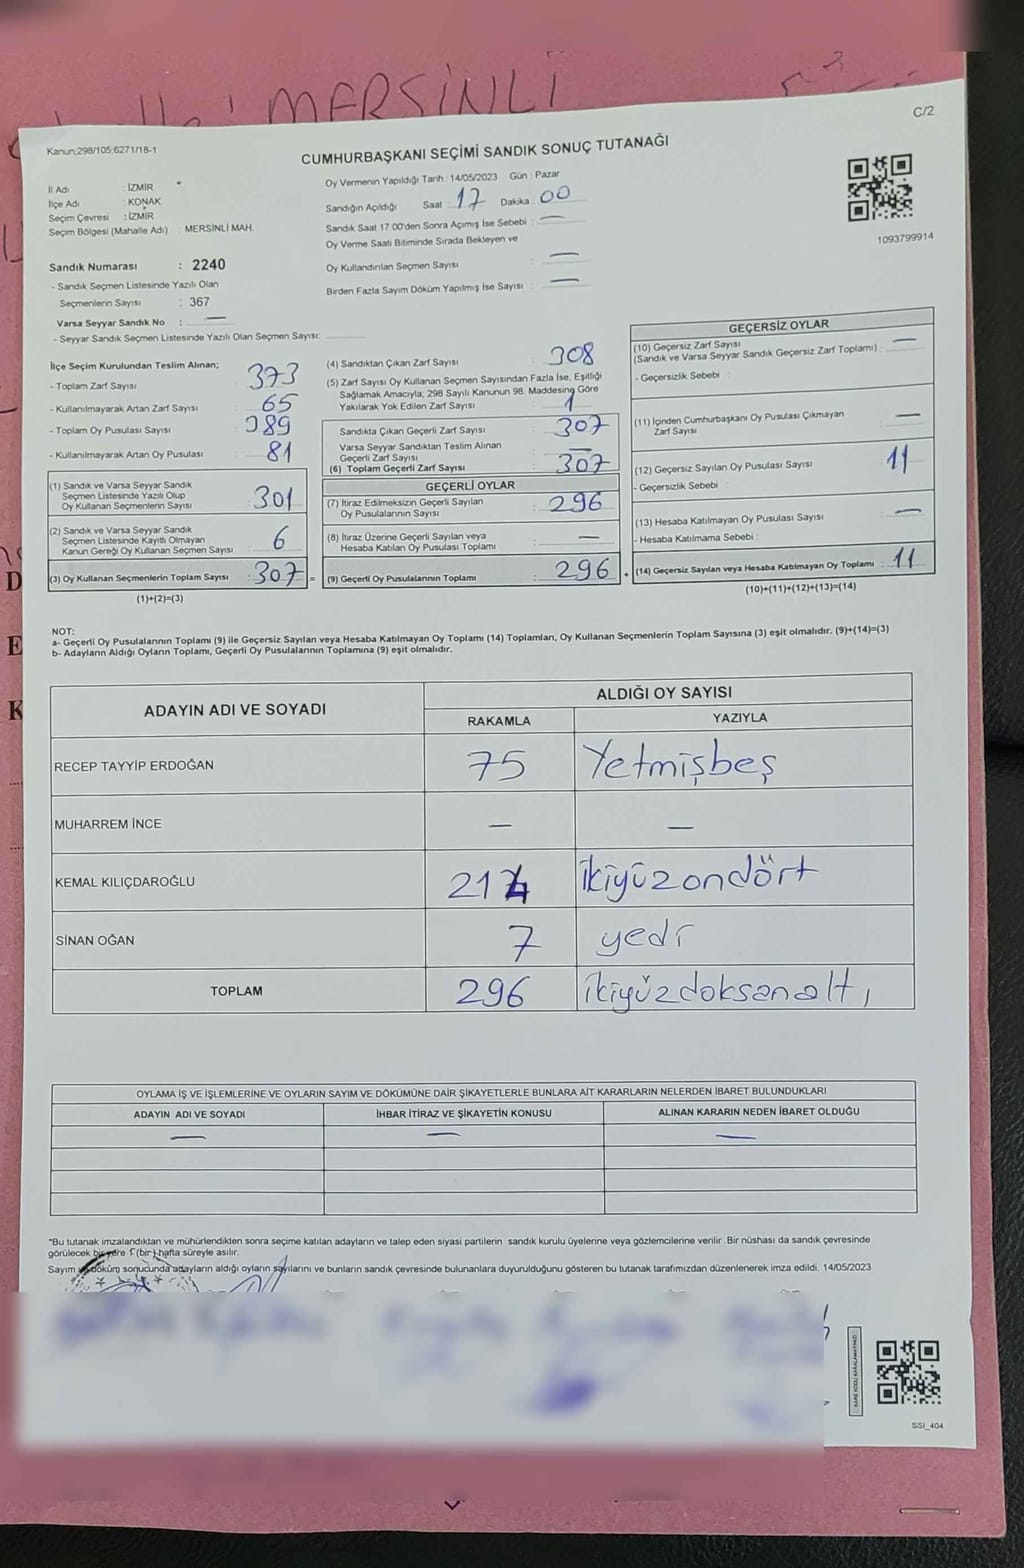 MERSİNLİ
C/2
Kanun;298/105;6271/18-1
CUMHURBAŞKANI SEÇİMİ SANDIK SONUÇ TUTANAĞI
İl Adı : İZMİR
İlçe Adı : KONAK
Seçim Çevresi : İZMİR
Seçim Bölgesi (Mahalle Adı) : MERSİNLİ MAH.
Oy Vermenin Yapıldığı Tarih : 14/05/2023 Gün : Pazar
Sandığın Açıldığı Saat : 17 Dakika : 00
Sandık Saat 17:00'den Sonra Açımış İse Sebebi : —
Oy Verme Saati Bitiminde Sırada Bekleyen ve
Oy Kullandırılan Seçmen Sayısı : —
Birden Fazla Sayım Döküm Yapılmış İse Sayısı : —
1093799914
Sandık Numarası : 2240
- Sandık Seçmen Listesinde Yazılı Olan
Seçmenlerin Sayısı : 367
Varsa Seyyar Sandık No : —
- Seyyar Sandık Seçmen Listesinde Yazılı Olan Seçmen Sayısı:
İlçe Seçim Kurulundan Teslim Alınan;
- Toplam Zarf Sayısı : 373
- Kullanılmayarak Artan Zarf Sayısı : 65
- Toplam Oy Pusulası Sayısı : 389
- Kullanılmayarak Artan Oy Pusulası : 81
(1) Sandık ve Varsa Seyyar Sandık
Seçmen Listesinde Yazılı Olup
Oy Kullanan Seçmenlerin Sayısı : 301
(2) Sandık ve Varsa Seyyar Sandık
Seçmen Listesinde Kayıtlı Olmayan
Kanun Gereği Oy Kullanan Seçmen Sayısı : 6
(3) Oy Kullanan Seçmenlerin Toplam Sayısı : 307 =
(1)+(2)=(3)
(4) Sandıktan Çıkan Zarf Sayısı : 308
(5) Zarf Sayısı Oy Kullanan Seçmen Sayısından Fazla İse, Eşitliği
Sağlamak Amacıyla; 298 Sayılı Kanunun 98. Maddesine Göre
Yakılarak Yok Edilen Zarf Sayısı : 1
Sandıkta Çıkan Geçerli Zarf Sayısı : 307
Varsa Seyyar Sandıktan Teslim Alınan
Geçerli Zarf Sayısı : —
(6) Toplam Geçerli Zarf Sayısı : 307
GEÇERLİ OYLAR
(7) İtiraz Edilmeksizin Geçerli Sayılan
Oy Pusulalarının Sayısı : 296
(8) İtiraz Üzerine Geçerli Sayılan veya
Hesaba Katılan Oy Pusulası Toplamı : —
(9) Geçerli Oy Pusulalarının Toplamı : 296 +
GEÇERSİZ OYLAR
(10) Geçersiz Zarf Sayısı : —
(Sandık ve Varsa Seyyar Sandık Geçersiz Zarf Toplamı)
- Geçersizlik Sebebi :
(11) İçinden Cumhurbaşkanı Oy Pusulası Çıkmayan
Zarf Sayısı : —
(12) Geçersiz Sayılan Oy Pusulası Sayısı : 11
- Geçersizlik Sebebi :
(13) Hesaba Katılmayan Oy Pusulası Sayısı : —
- Hesaba Katılmama Sebebi :
(14) Geçersiz Sayılan veya Hesaba Katılmayan Oy Toplamı : 11
(10)+(11)+(12)+(13)=(14)
NOT:
a- Geçerli Oy Pusulalarının Toplamı (9) ile Geçersiz Sayılan veya Hesaba Katılmayan Oy Toplamı (14) Toplamları, Oy Kullanan Seçmenlerin Toplam Sayısına (3) eşit olmalıdır. (9)+(14)=(3)
b- Adayların Aldığı Oyların Toplamı, Geçerli Oy Pusulalarının Toplamına (9) eşit olmalıdır.
ADAYIN ADI VE SOYADI
ALDIĞI OY SAYISI
RAKAMLA YAZIYLA
RECEP TAYYİP ERDOĞAN 75 Yetmişbeş
MUHARREM İNCE — —
KEMAL KILIÇDAROĞLU 214 ikiyüzondört
SİNAN OĞAN 7 yedi
TOPLAM 296 ikiyüzdoksanaltı
OYLAMA İŞ VE İŞLEMLERİNE VE OYLARIN SAYIM VE DÖKÜMÜNE DAİR ŞİKAYETLERLE BUNLARA AİT KARARLARIN NELERDEN İBARET BULUNDUKLARI
ADAYIN ADI VE SOYADI İHBAR İTİRAZ VE ŞİKAYETİN KONUSU ALINAN KARARIN NEDEN İBARET OLDUĞU
— — —
*Bu tutanak imzalandıktan ve mühürlendikten sonra seçime katılan adayların ve talep eden siyasi partilerin sandık kurulu üyelerine veya gözlemcilerine verilir. Bir nüshası da sandık çevresinde
görülecek bir yere 1 (bir) hafta süreyle asılır.
Sayım ve döküm sonucunda adayların aldığı oyların sayılarını ve bunların sandık çevresinde bulunanlara duyurulduğunu gösteren bu tutanak tarafımızdan düzenlenerek imza edildi. 14/05/2023
KARE KODU KARALAMAYINIZ!
SSI_404
D
E
K